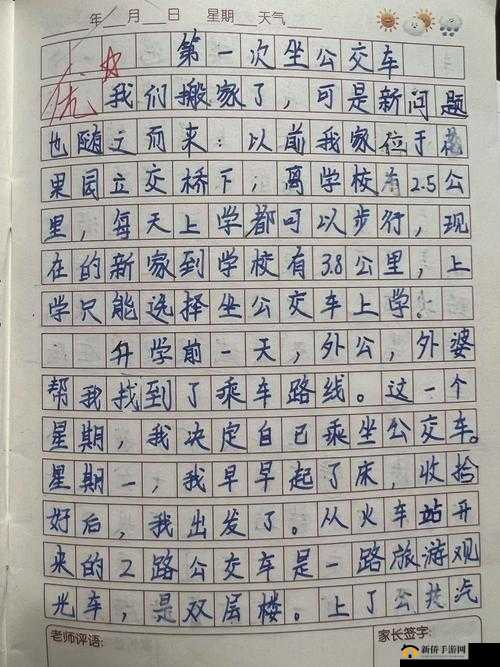 年 月 日 星期 天气
优
第一次坐公交车
我们搬家了，可是新问题
也随之而来：以前我家位于花
果园立交桥下，离学校有2.5公
里，每天上学都可以步行，现
在的新家到学校有3.8公里，上
学只能选择坐公交车上学。
升学前一天，外公，外婆
帮我找到了乘车路线。这一个
星期，我决定自己乘坐公交车。
星期一，我早早起了床，收拾
好后，我出发了。从火车站开
来的2路公交车是一路旅游观
光车，是双层楼。上了公共汽
老师评语：
家长签字：
新侨手游网